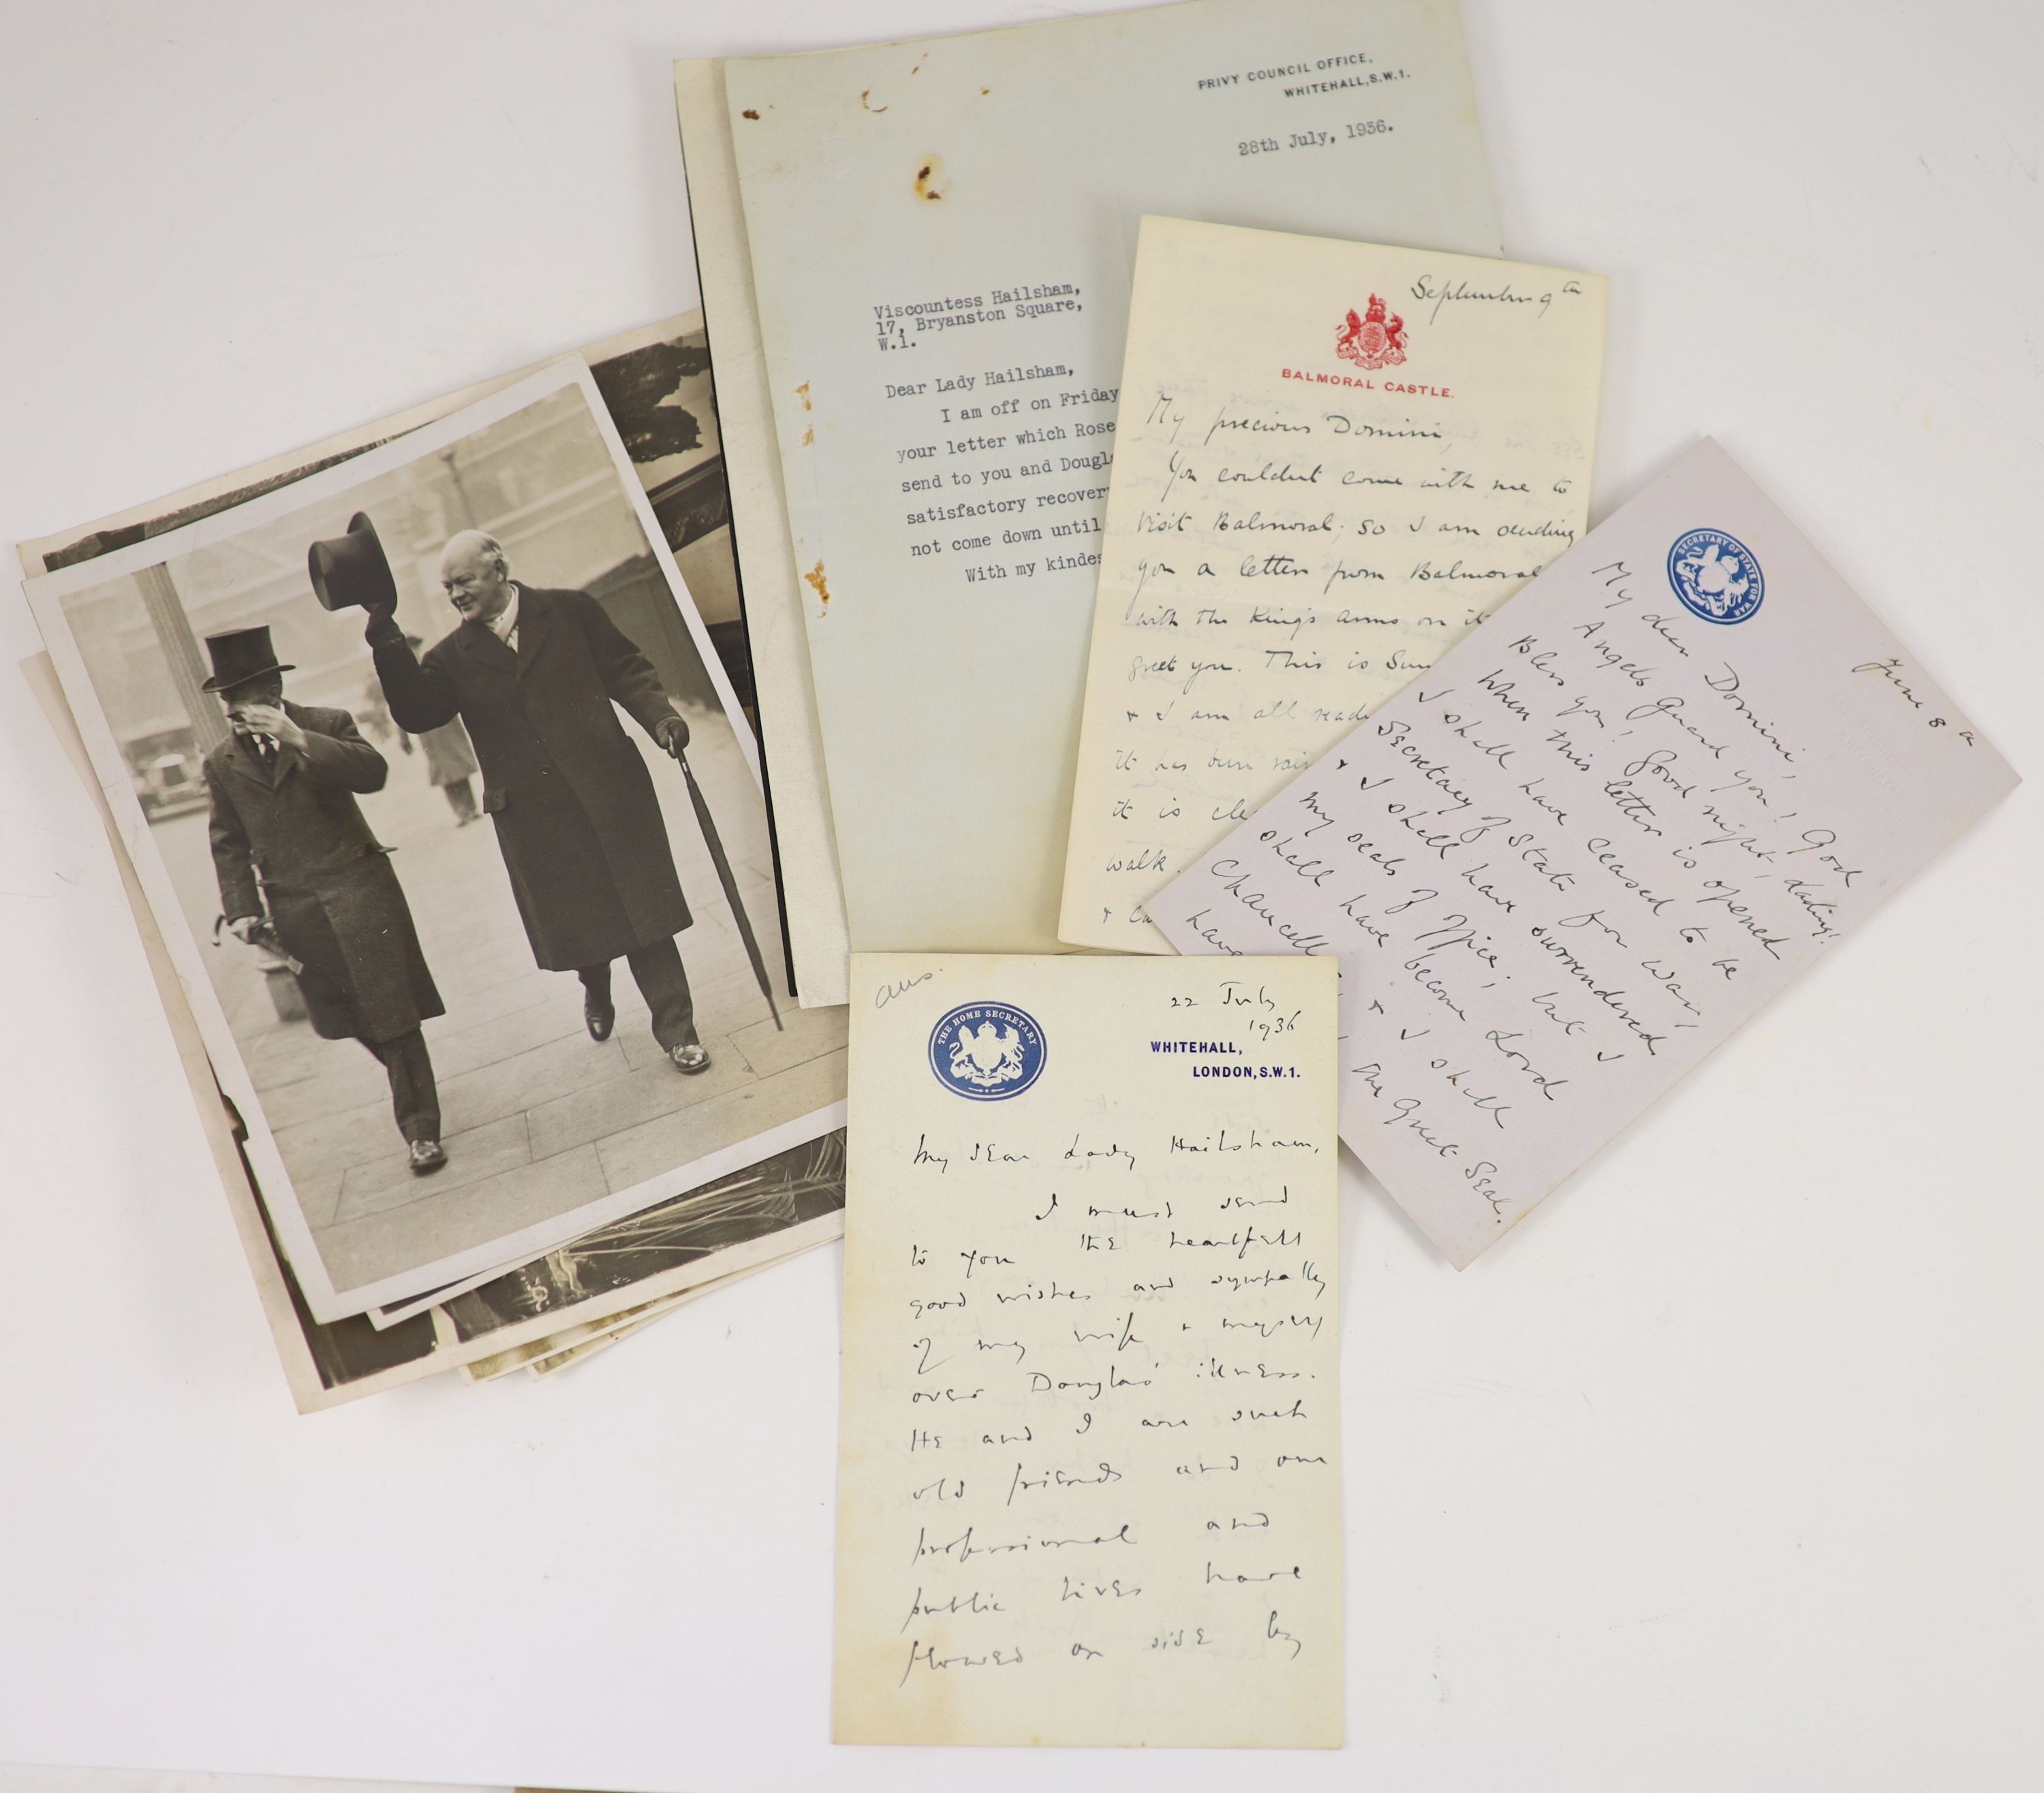 PRIVY COUNCIL OFFICE,
WHITEHALL, S.W.1.
28th July, 1936.
Viscountess Hailsham,
17, Bryanston Square,
W.1.
Dear Lady Hailsham,
I am off on Friday
your letter which Rose
send to you and Dougl
satisfactory recovery
not come down until
With my kindes
September 9th
BALMORAL CASTLE.
My precious Domini,
You couldn't come with me to
visit Balmoral; so I am sending
you a letter from Balmoral
with the King's arms on it
greet you. This is Sun
+ I am all read
it has been rai
it is cle
walk.
+
SECRETARY OF STATE FOR WAR
June 8th
My dear Domini,
Angels Guard you! God
Bless you! Good night, darling!
When this letter is opened
I shall have ceased to be
Secretary of State for War,
+ I shall have surrendered
my seals of office; but I
shall have become Lord
Chancell + I shall
have the Great Seal.
ans.
THE HOME SECRETARY
22 July
1936
WHITEHALL,
LONDON, S.W.1.
My dear Lady Hailsham,
I must send
to you the heartfelt
good wishes and sympathy
of my wife + myself
over Douglas' illness.
He and I are such
old friends and our
professional and
public lives have
flowed on side by